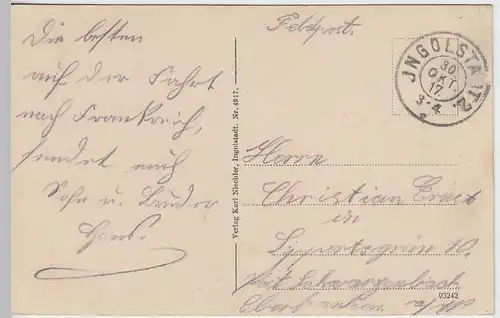 Die besten
auf der Fahrt
nach Frankreich,
sendet euch
Sohn u. Bruder
Hans.
Verlag Karl Nischler, Ingolstadt. Nr. 4917.
Feldpost.
JNGOLSTADT 2.
30
OKT.
17.
3-4
Herrn
Christian Ernst
in
Lippertsgrün 10.
Post Schwarzenbach
Oberfranken a/W
03242